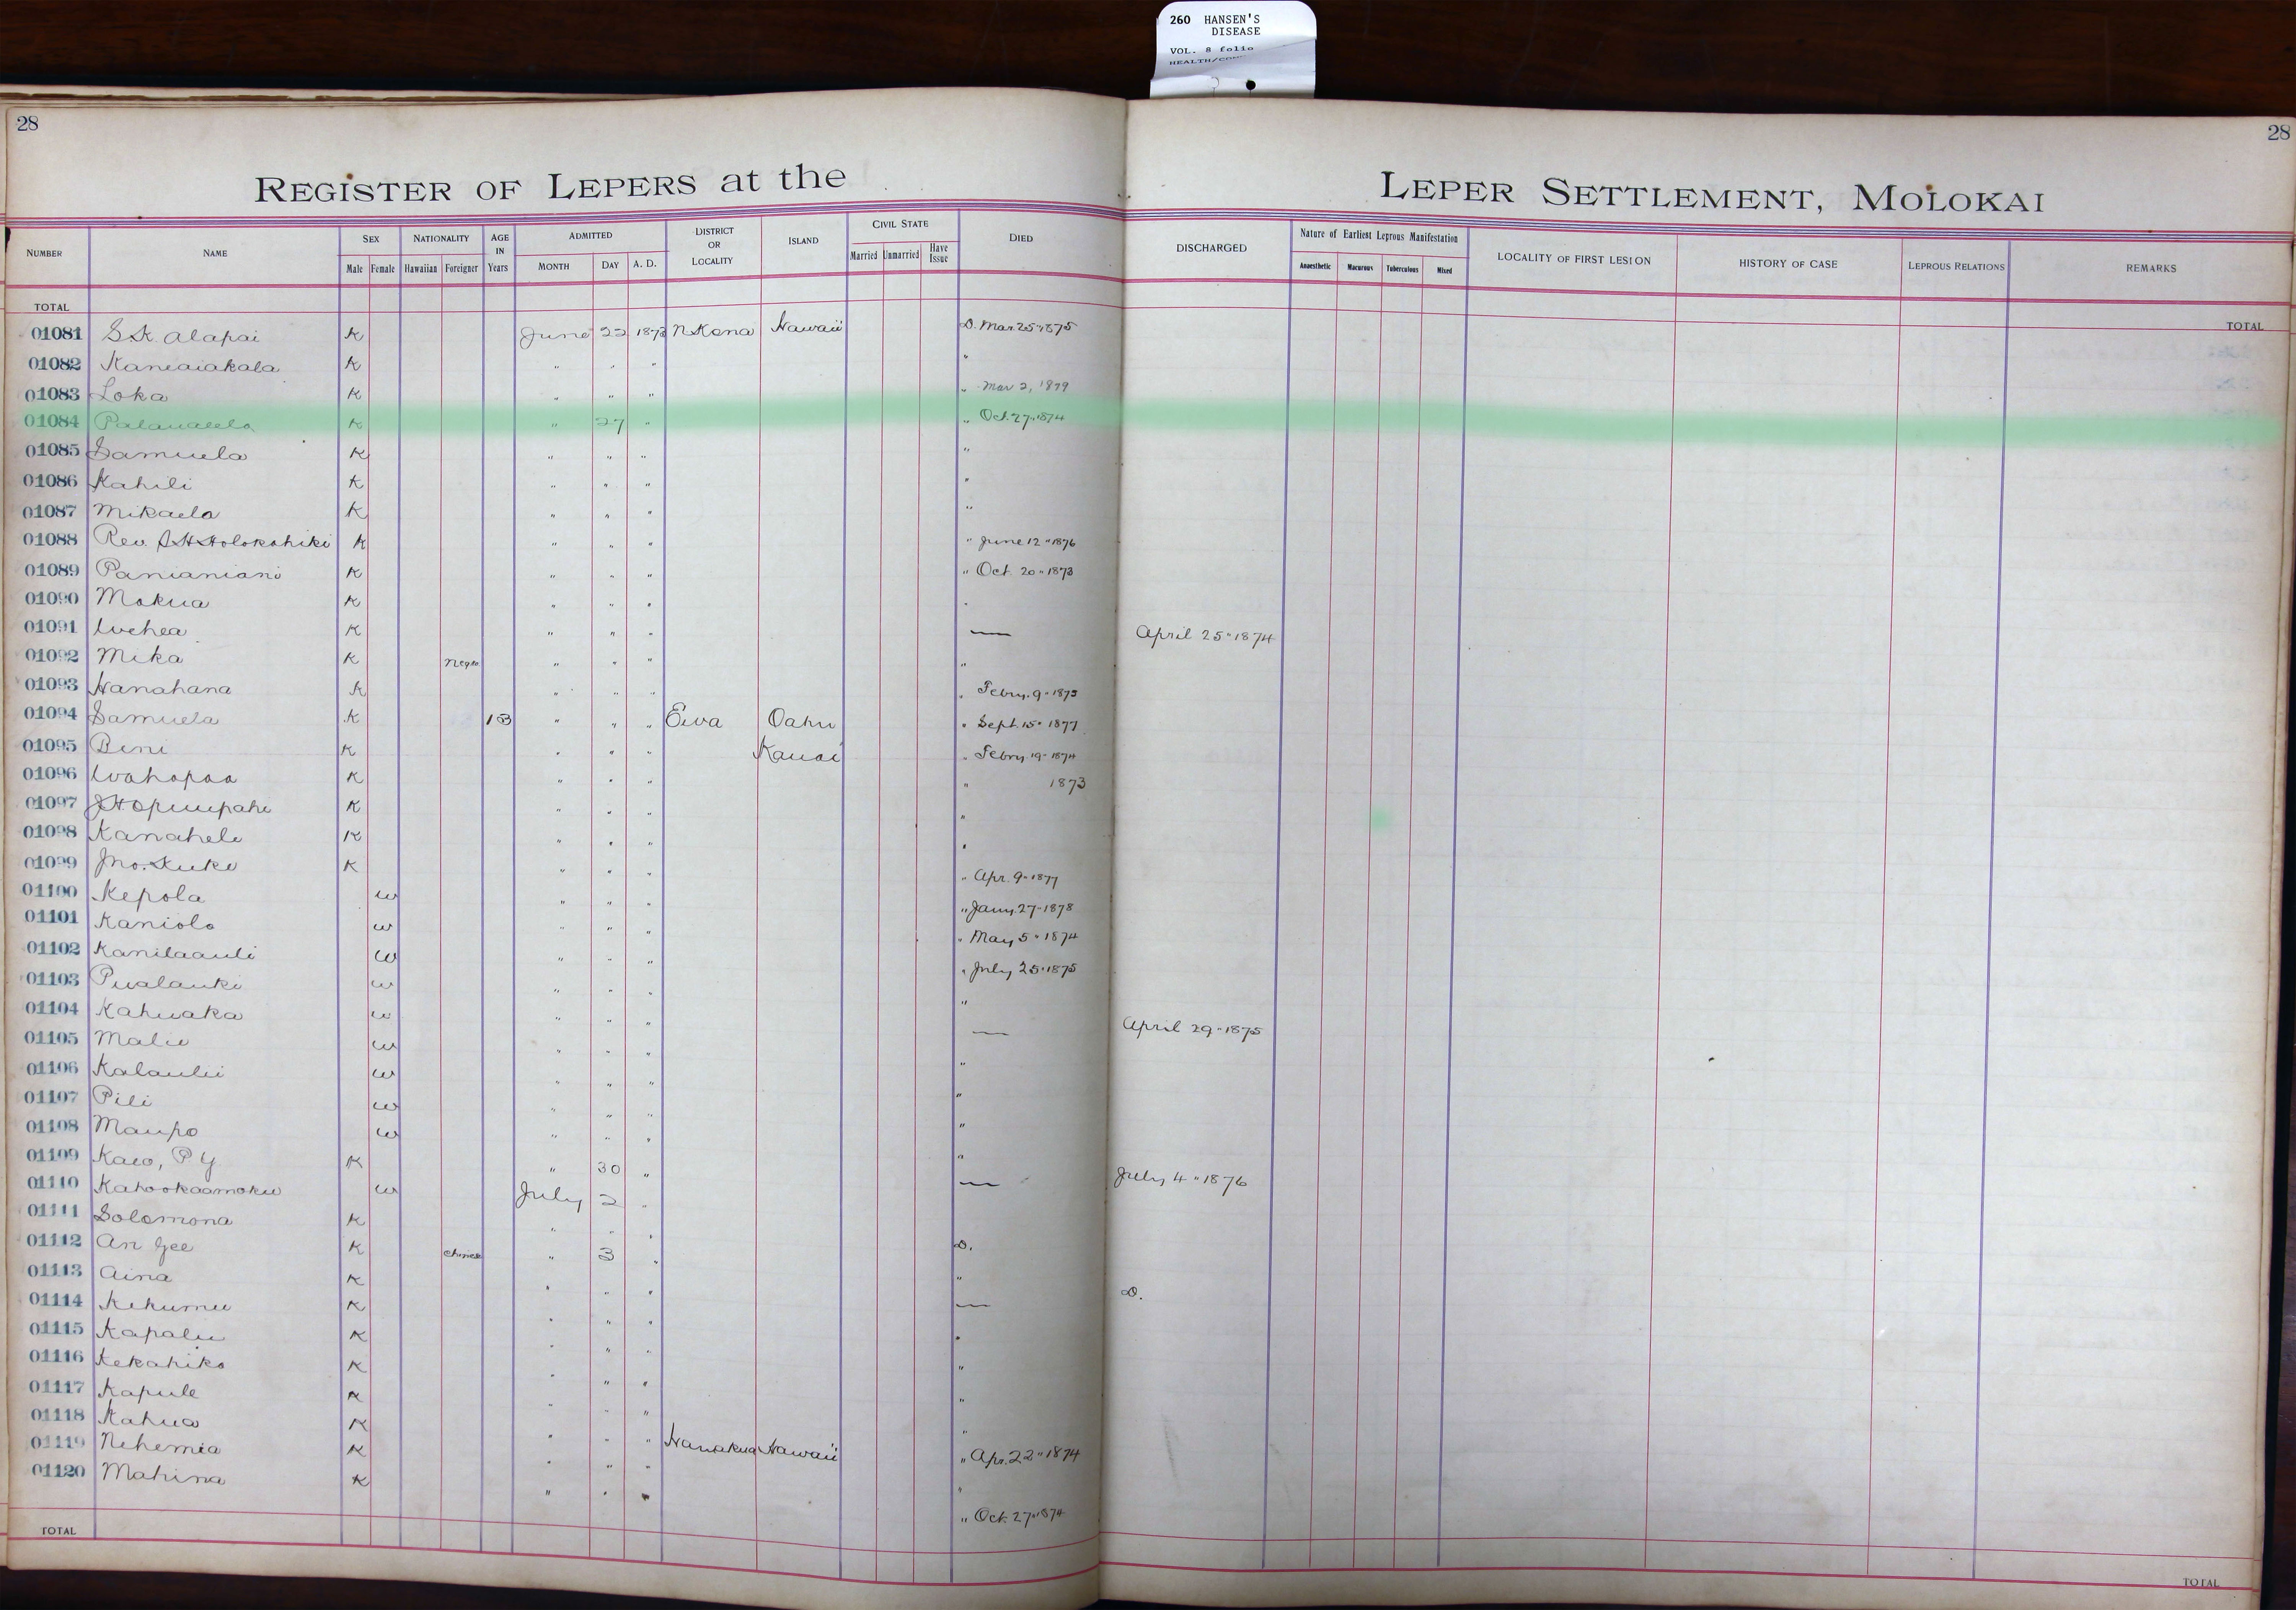 260 HANSEN'S
DISEASE
VOL. 8 folio
28
28
REGISTER OF LEPERS at the LEPER SETTLEMENT, MOLOKAI
NUMBER NAME SEX Male Female NATIONALITY Hawaiian Foreigner AGE IN Years ADMITTED MONTH DAY A. D. DISTRICT OR LOCALITY ISLAND CIVIL STATE Married Unmarried Have Issue DIED DISCHARGED Nature of Earliest Leprous Manifestation Anaesthetic Macurous Tuberculous Mixed LOCALITY OF FIRST LESION HISTORY OF CASE LEPROUS RELATIONS REMARKS
TOTAL TOTAL
01081 S.K. Alapai K June 22 1873 N Kona Hawaii D. Mar. 25 " 1875
01082 Kaneaiakala K " " " "
01083 Loka K " " " " Mar 2, 1879
01084 K " 27 " " Oct. 27 " 1874
01085 Samuela K " " " "
01086 Kahili K " " " "
01087 Mikaela K " " " "
01088 Rev. Holokahiki K " " " " June 12 " 1876
01089 Panianiani K " " " " Oct. 20 " 1873
01090 Mokua K " " " "
01091 Uehea K " " " — April 25 " 1874
01092 Mika K Negro " " " "
01093 Hanahana K " " " " Febry. 9 "
01094 Samuela K 13 " " " Ewa Oahu " Sept. 15 " 1877
01095 Beni K " " " Kauai " Febry 19 " 1874
01096 Wahapaa K " " " " 1873
01097 J.H. Opuupahi K " " " "
01098 Kanahele K " " " "
01099 Jno. Kuke K " " " " Apr. 9 " 1877
01100 Kepola w " " " " Jany. 27 " 1878
01101 Kaniolo w " " " " May 5 " 1874
01102 Kanilaauli w " " " " July 25 " 1875
01103 Pualauki w " " " "
01104 Kahuaka w " " " — April 29 " 1875
01105 Malie w " " " "
01106 Kalaulii w " " " "
01107 Pili w " " " "
01108 Maupo w " " " "
01109 Kaeo, P Y K " 30 " — July 4 " 1876
01110 Kahookaamoku w July 2 "
01111 Solomona K " " " D.
01112 An Gee K Chinese " 3 " "
01113 Aina K " " " — D.
01114 Kekumu K " " " "
01115 Kapalu K " " " "
01116 Kekahiko K " " " "
01117 Kapule K " " " "
01118 Kahua K " " "
01119 Nehemia K " " " Hamakua Hawaii " Apr. 22 " 1874
01120 Mahina K " " " "
" Oct. 27 " 1874
TOTAL TOTAL